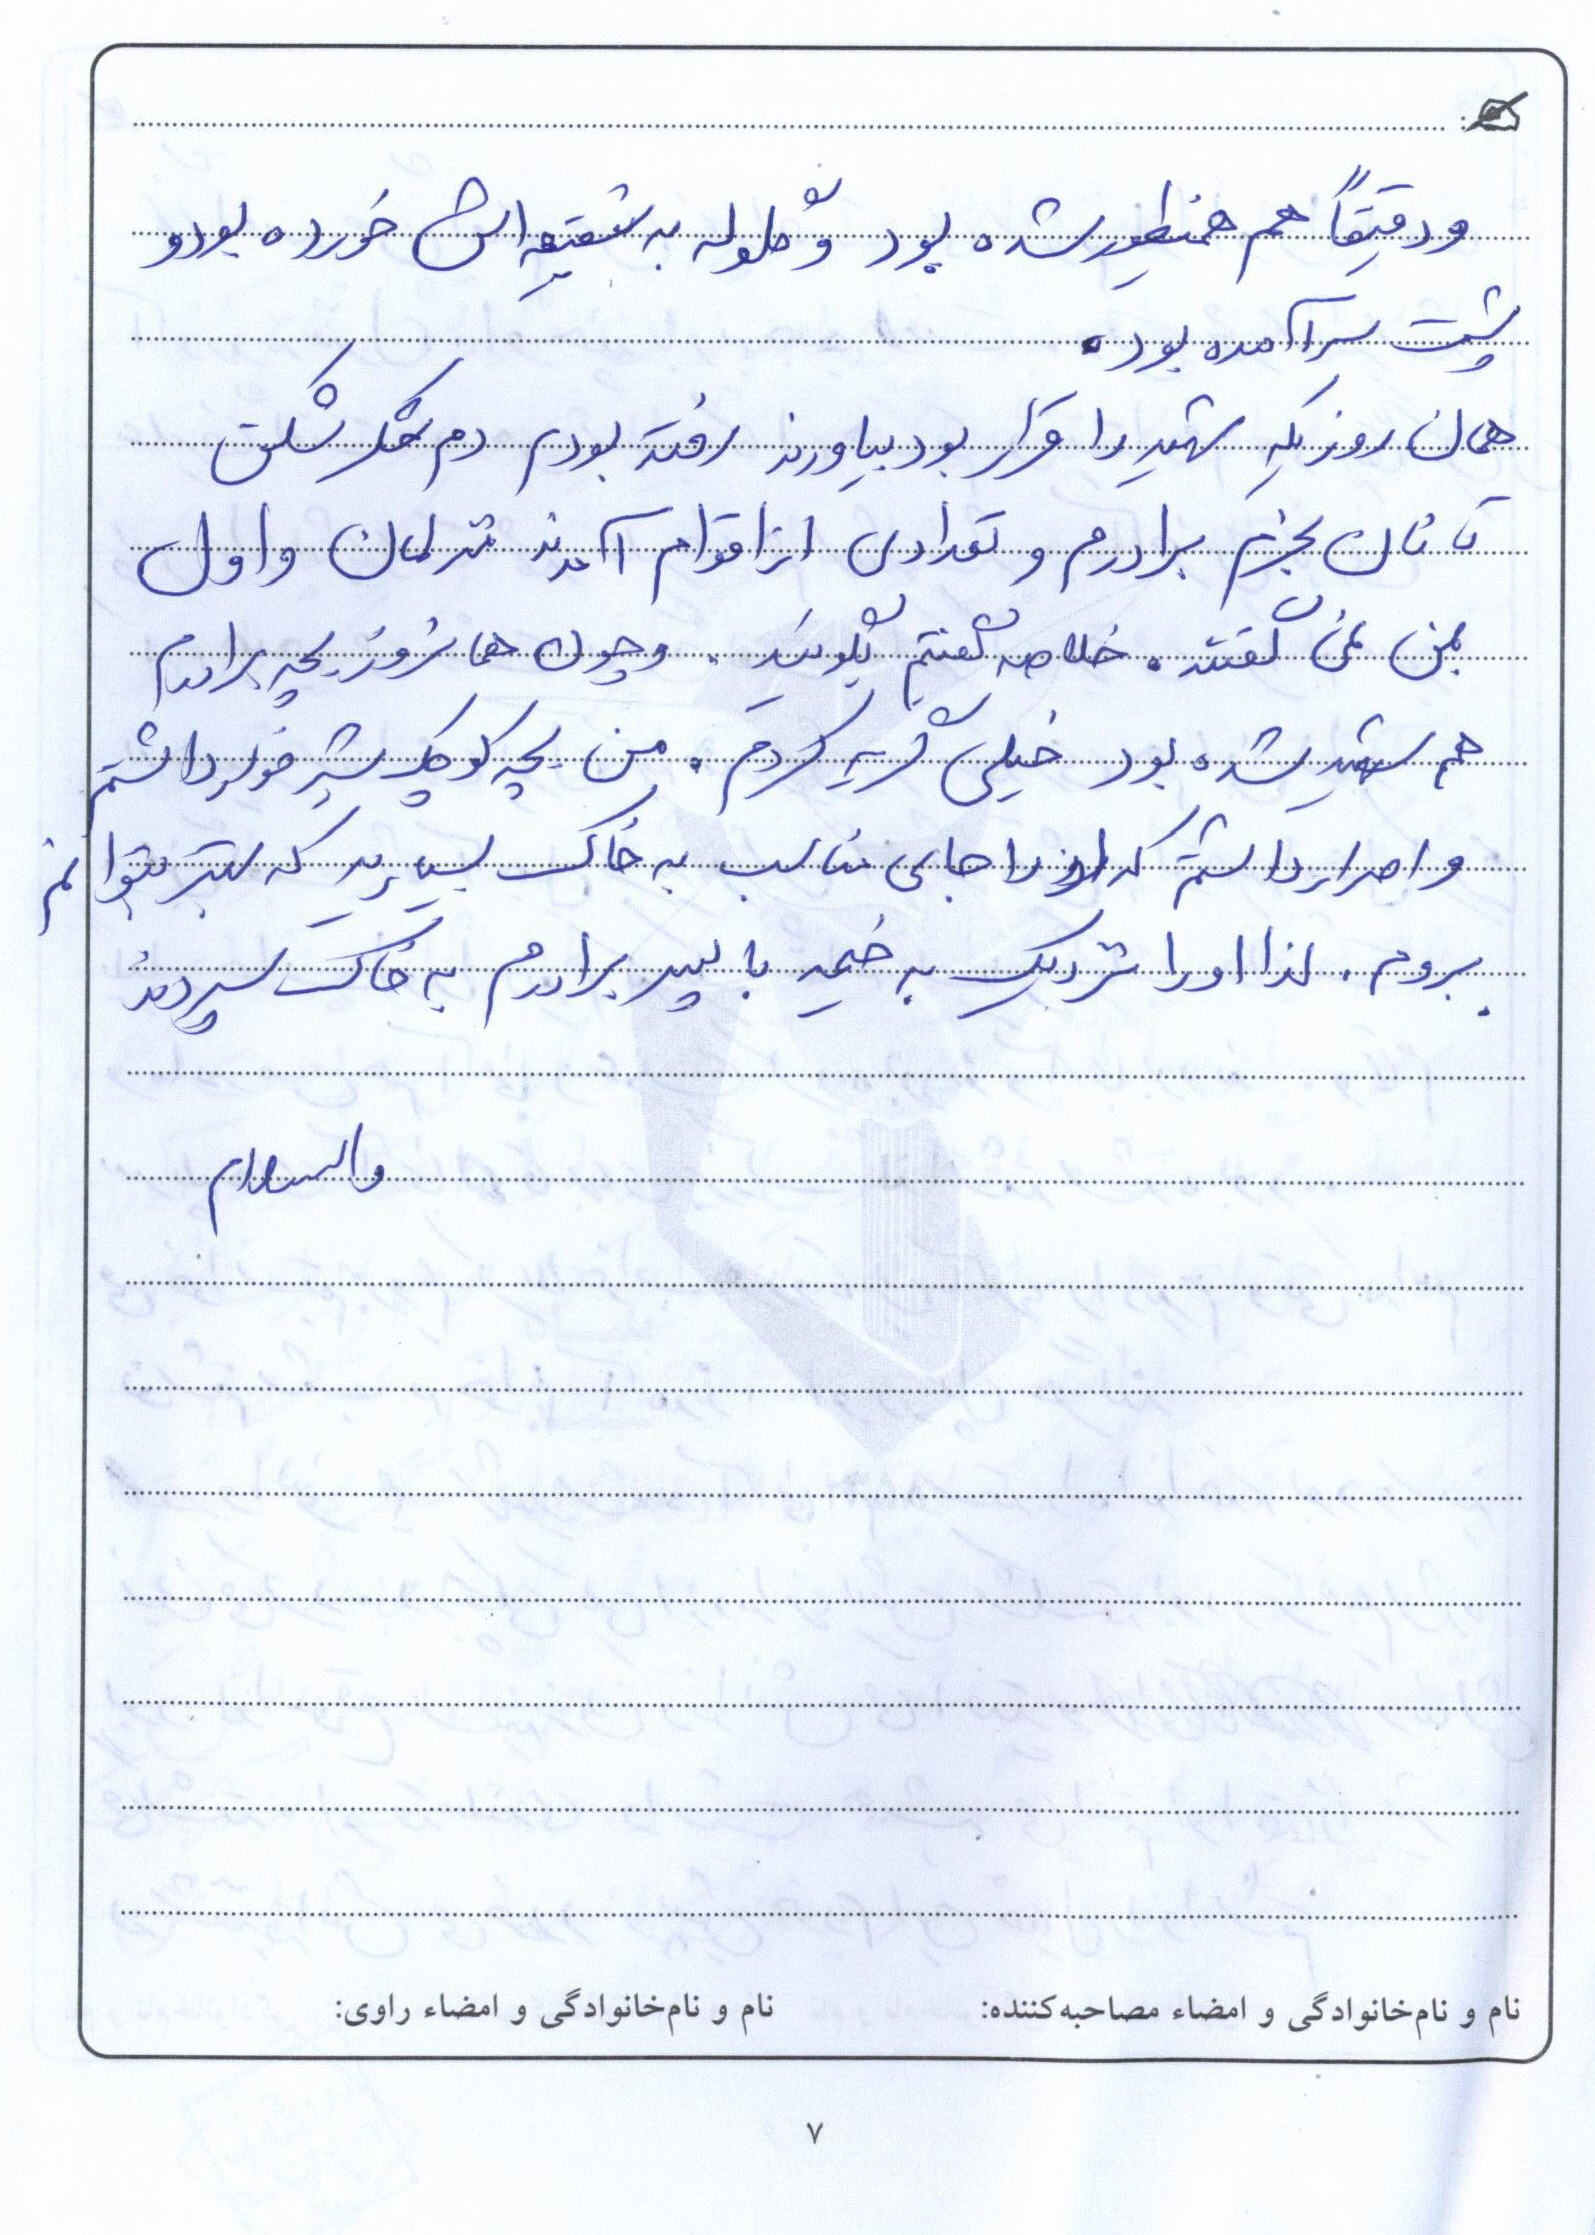 و دقیقاً هم همنطور شده بود و گلوله به شقیقه اش خورده بود و
پشت سر آمده بود.
همان روزیکه شهید را قرار بود بیاورند رفته بودم دم
تا نان بخرم برادرم و تعدادی از اقوام آمدند منزلمان و اول
بمن نمی گفتند. خلاصه گفتم بگوئید. و چون همانروز بچه برادرم
هم شهید شده بود خیلی گریه کردم. من بچه کوچک شیر خوار داشتم
و اصرار داشتم که او را جای مناسب به خاک بسپارید که بهتر بتوانم
بروم. لذا او را نزدیک به خیمه با پسر برادرم به خاک سپردند
والسلام
نام و نام‌خانوادگی و امضاء مصاحبه‌کننده: نام و نام‌خانوادگی و امضاء راوی:
۷